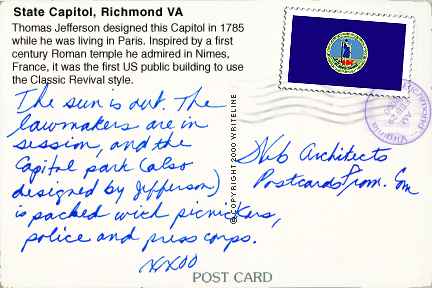 State Capitol, Richmond VA
Thomas Jefferson designed this Capitol in 1785
while he was living in Paris. Inspired by a first
century Roman temple he admired in Nimes,
France, it was the first US public building to use
the Classic Revival style.
The sun is out. The
lawmakers are in
session, and the
Capitol park (also
designed by Jefferson)
is packed with picnickers,
police and press corps.
xxoo
© COPYRIGHT 2000 WRITELINE
Architects
PostcardsFrom.Com
POST CARD